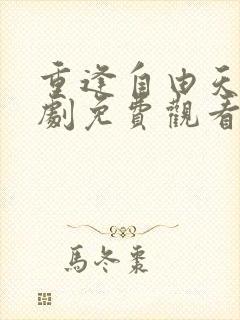 重逢自由天
劇免費觀看
馬冬棗